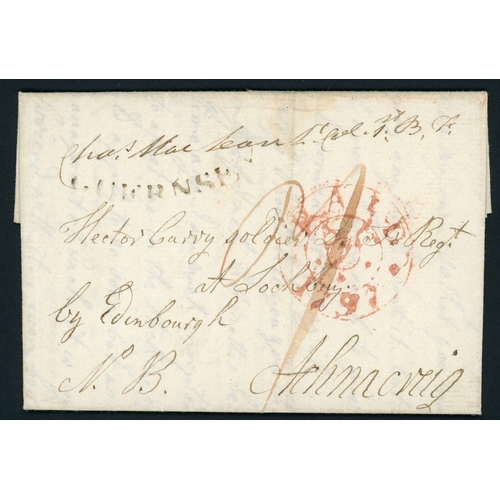 Chas. Maclean Lt. Col. 1st B. F.
GUERNSEY
Hector Curry soldier Regt
at Lochbuy
by Edinbourgh
N. B. Achnacraig
PAID